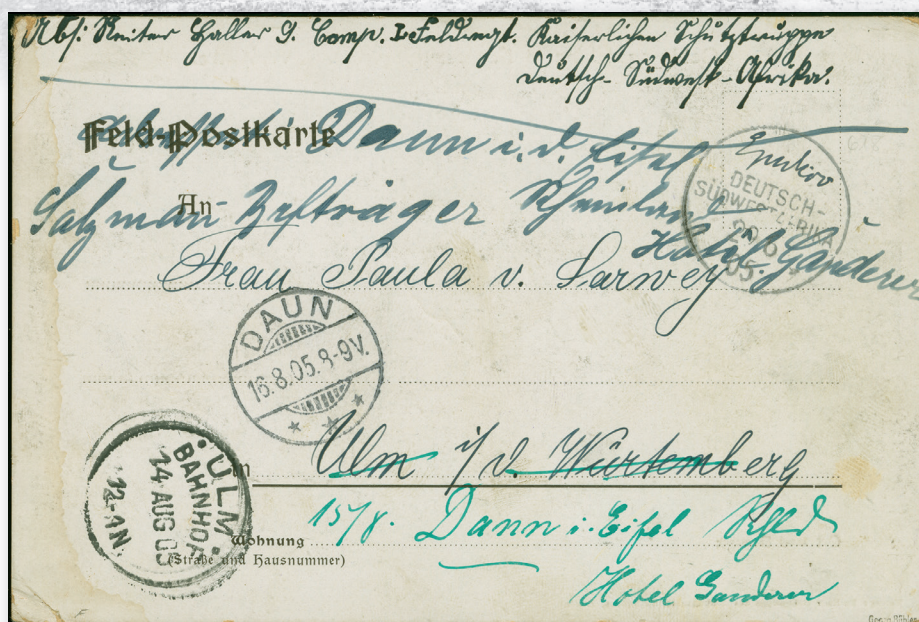 Abs: Reiter Haller 9. Comp. I. Feldregt. Kaiserlichen Schutztruppe
Deutsch-Südwest-Afrika.
Feld-Postkarte
Daun i. d. Eifel
An
Rheinland
Hotel Ganderer
Frau Paula v. Sarwey
DEUTSCH-
SÜDWESTAFRIKA
05
DAUN
16.8.05.8-9V.
Ulm i/d. Würtemberg
in
ULM
BAHNHOF
14 AUG 05
12-1N.
15/8. Daun i. Eifel Rhld
Wohnung
(Straße und Hausnummer)
Hotel Ganderer